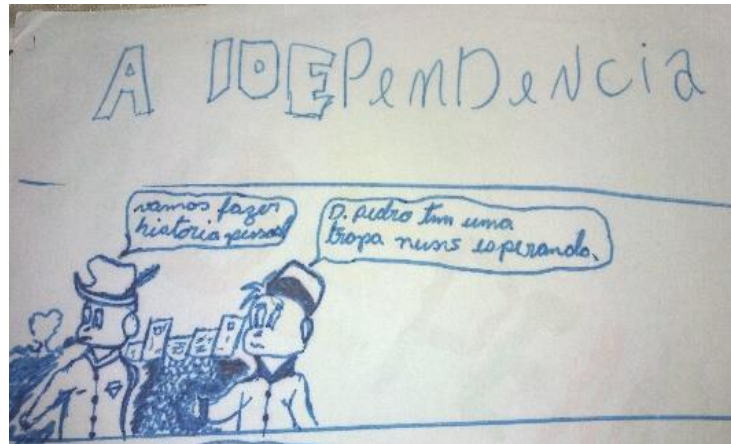 A IDEPenDeNcia
vamos fazer
historia pessoal
D. pedro tem uma
tropa nuns esperando.